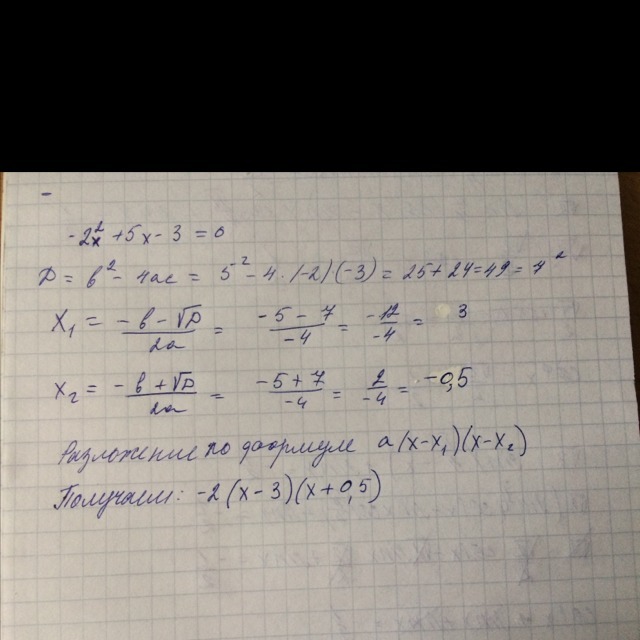 -2x² + 5x - 3 = 0
D = b² - 4ac = 5² - 4 · (-2)(-3) = 25 + 24 = 49 = 7²
X₁ = (-b - √D)/2a = (-5 - 7)/-4 = -12/-4 = 3
X₂ = (-b + √D)/2a = (-5 + 7)/-4 = 2/-4 = -0,5
Разложение по формуле a(x-x₁)(x-x₂)
Получаем: -2(x-3)(x+0,5)